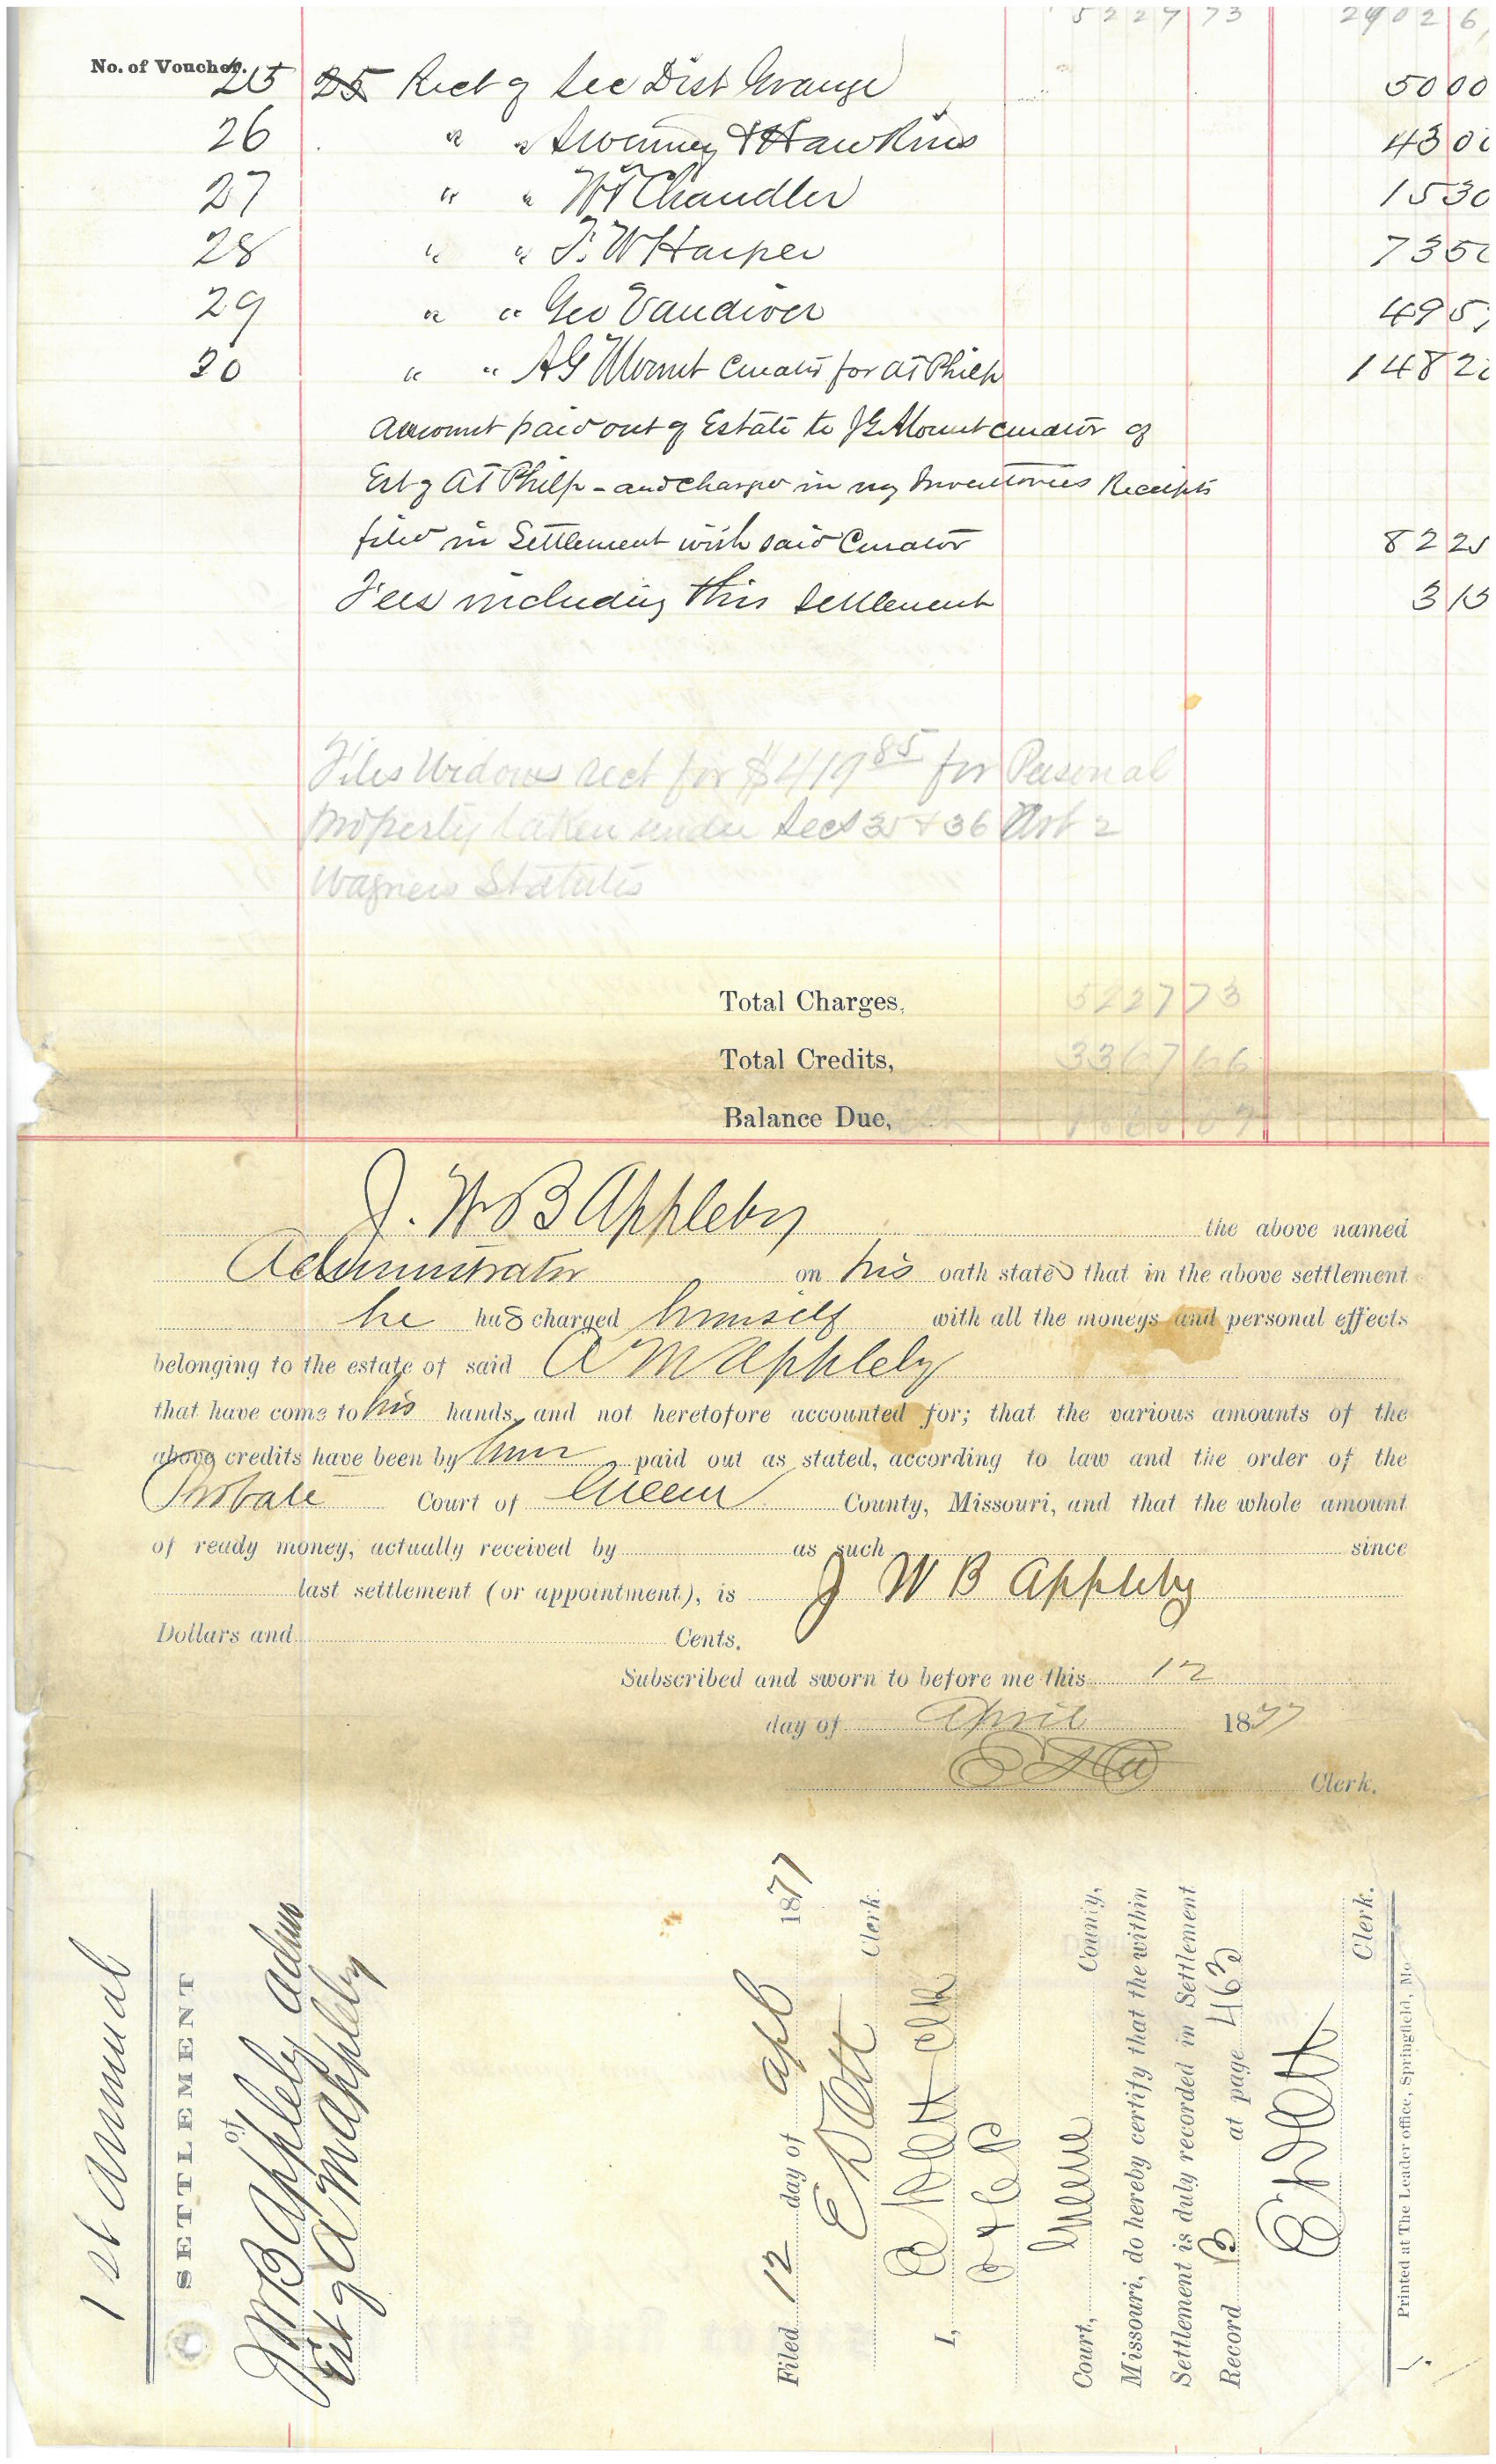 5227 73 2902 6
No. of Voucher.
25 25 Rect of Sec Dist Grange 50 00
26 " " Sweeney & Hawkins 43 0
27 " " Wm Chandler 15 30
28 " " F. W Harper 73 50
29 " " Geo Vandiver 49 5
30 " " AG Mount Curator for AT Philp 148 2
Amount paid out of Estate to JG Mount curator of
Est of AT Philp - and charged in my Inventories Receipts
filed in Settlement with said Curator 82 25
Fees including this settlement 3 15
Files Widows rect for $419 85 for Personal
Property taken under Sec 35 & 36 Art 2
Wagners Statutes
Total Charges, 5227 73
Total Credits, 3367 66
Balance Due, 1860 07
J. W B Appleby the above named
Administrator on his oath states that in the above settlement
he has charged himself with all the moneys and personal effects
belonging to the estate of said A M Appleby
that have come to his hands, and not heretofore accounted for; that the various amounts of the
above credits have been by him paid out as stated, according to law and the order of the
Probate Court of Green County, Missouri, and that the whole amount
of ready money, actually received by as such since
last settlement (or appointment), is J W B Appleby
Dollars and Cents.
Subscribed and sworn to before me this 12
day of April 1877
Clerk.
1st Annual
SETTLEMENT
of
JWB Appleby Admr
Est of A M Appleby
Filed 12 day of Apl 1877
Clerk.
I, Clk
Court, Greene County,
Missouri, do hereby certify that the within
Settlement is duly recorded in Settlement
Record B at page 463
Clerk.
Printed at The Leader office, Springfield, Mo